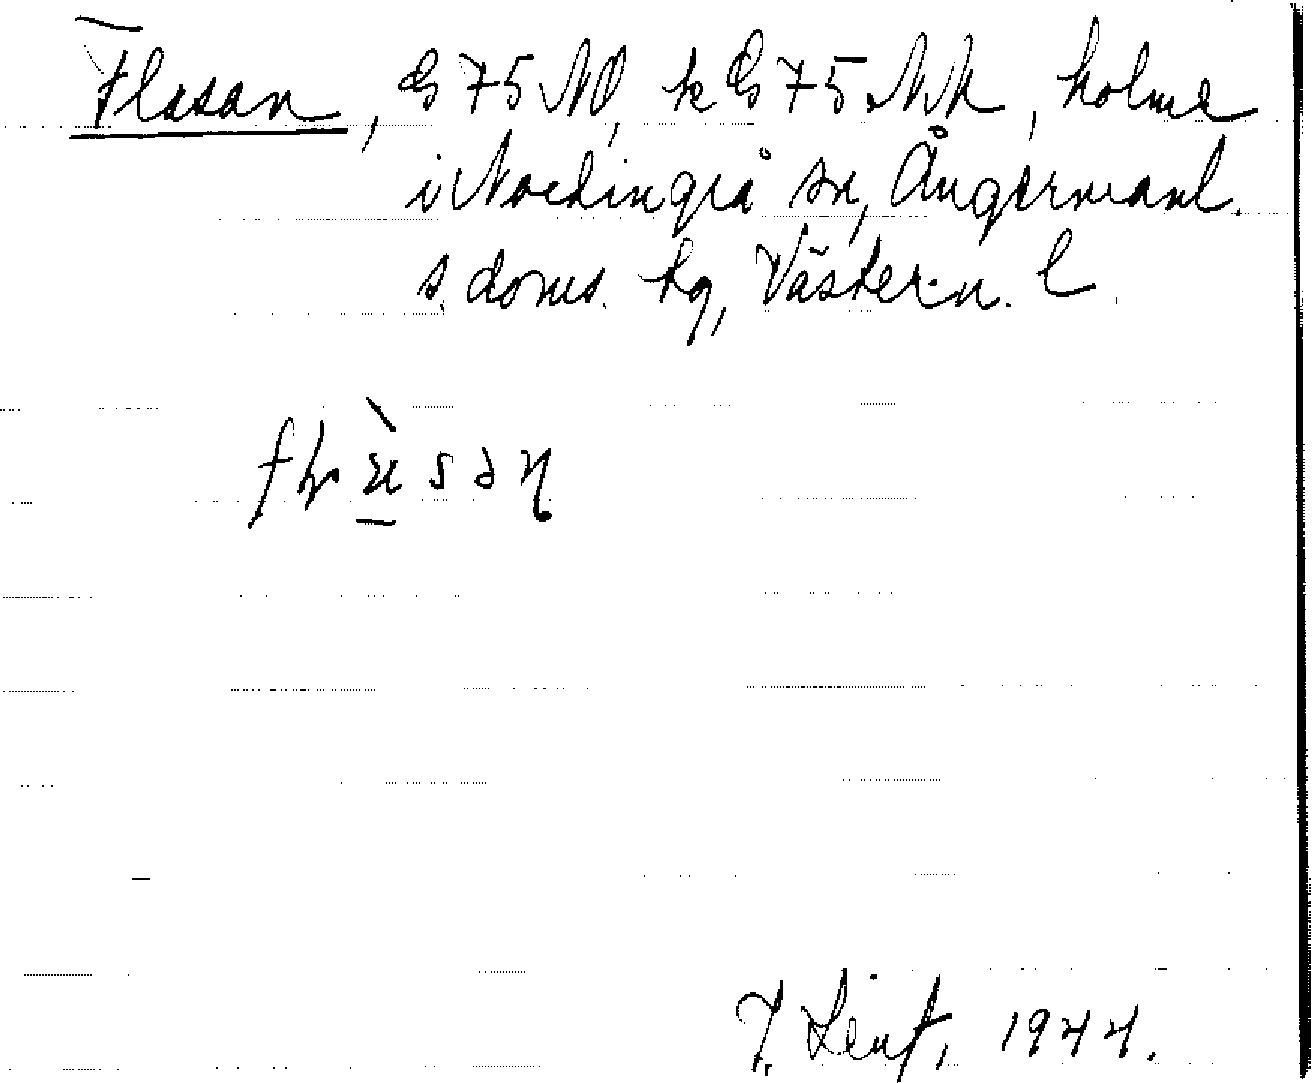 Flasan, G 75 NO, k G 75 NK, holme
i Nordingrå sn, Ångermanl.
s. doms. hg, Västern. l
J. Lént, 1944.